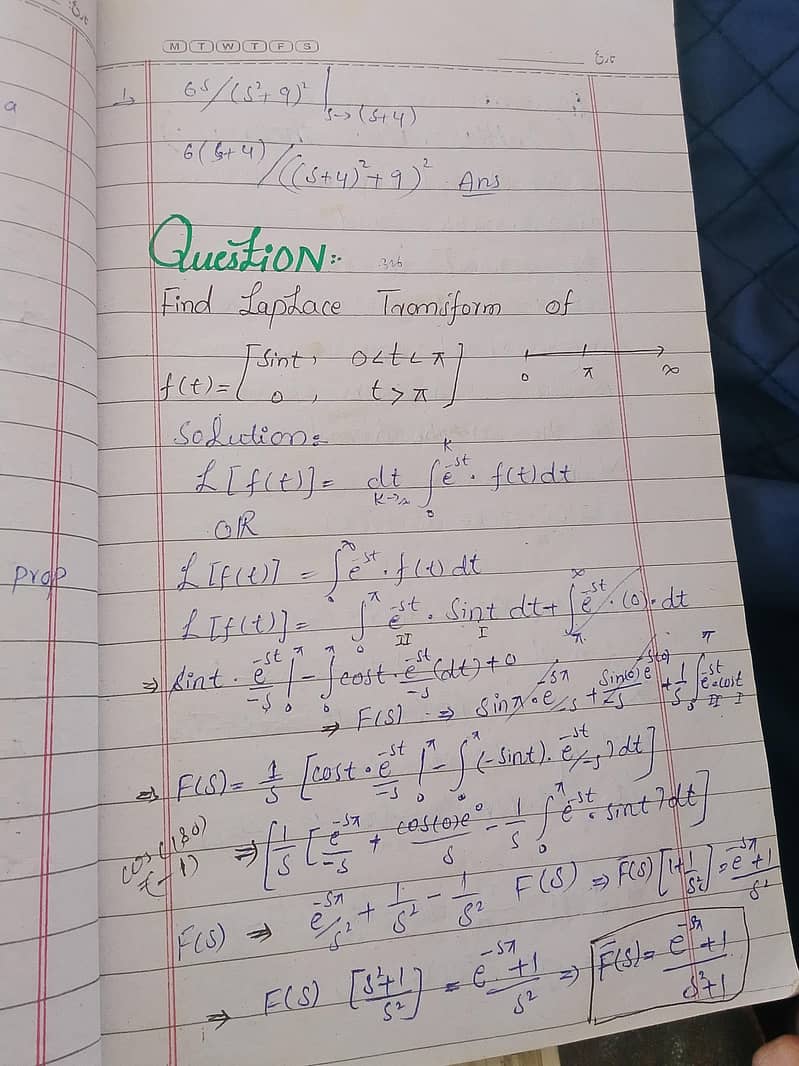 M T W T F S
6s/(s²+9)² | s→(s+4)
6(s+4)/((s+4)²+9)² Ans
QuesTiON:-
Find LapLace Transform of
f(t)=[sint, 0<t<π
0, t>π] 0 π ∞
Solution:
L[f(t)]= dt K→∞ ∫₀ᴷ e^-st . f(t)dt
OR
prop
L[f(t)] = ∫₀^∞ e^-st . f(t) dt
L[f(t)]= ∫₀^π e^-st . Sint dt + ∫π^∞ e^-st . (0) . dt
II I
⇒ Sint . e^-st/-s |₀^π - ∫₀^π cost . e^-st/-s (dt) + 0
⇒ F(s) ⇒ sinπ . e^-sπ/-s + Sin(0) e^-s(0)/s + 1/s ∫₀^π e^-st . cost
II I
⇒ F(s) = 1/s [cost . e^-st/-s |₀^π - ∫₀^π (-sint) . e^-st/-s ? dt]
cos(180)
(-1)
⇒ [1/s [e^-sπ/-s + cos(0)e^0/s - 1/s ∫₀^π e^-st . sint ? dt]
F(s) ⇒ e^-sπ/s² + 1/s² - 1/s² F(s) ⇒ F(s) [1+1/s²] = e^-sπ+1/s²
⇒ F(s) [s²+1/s²] = e^-sπ+1/s² ⇒ F(s) = e^-sπ+1/s²+1